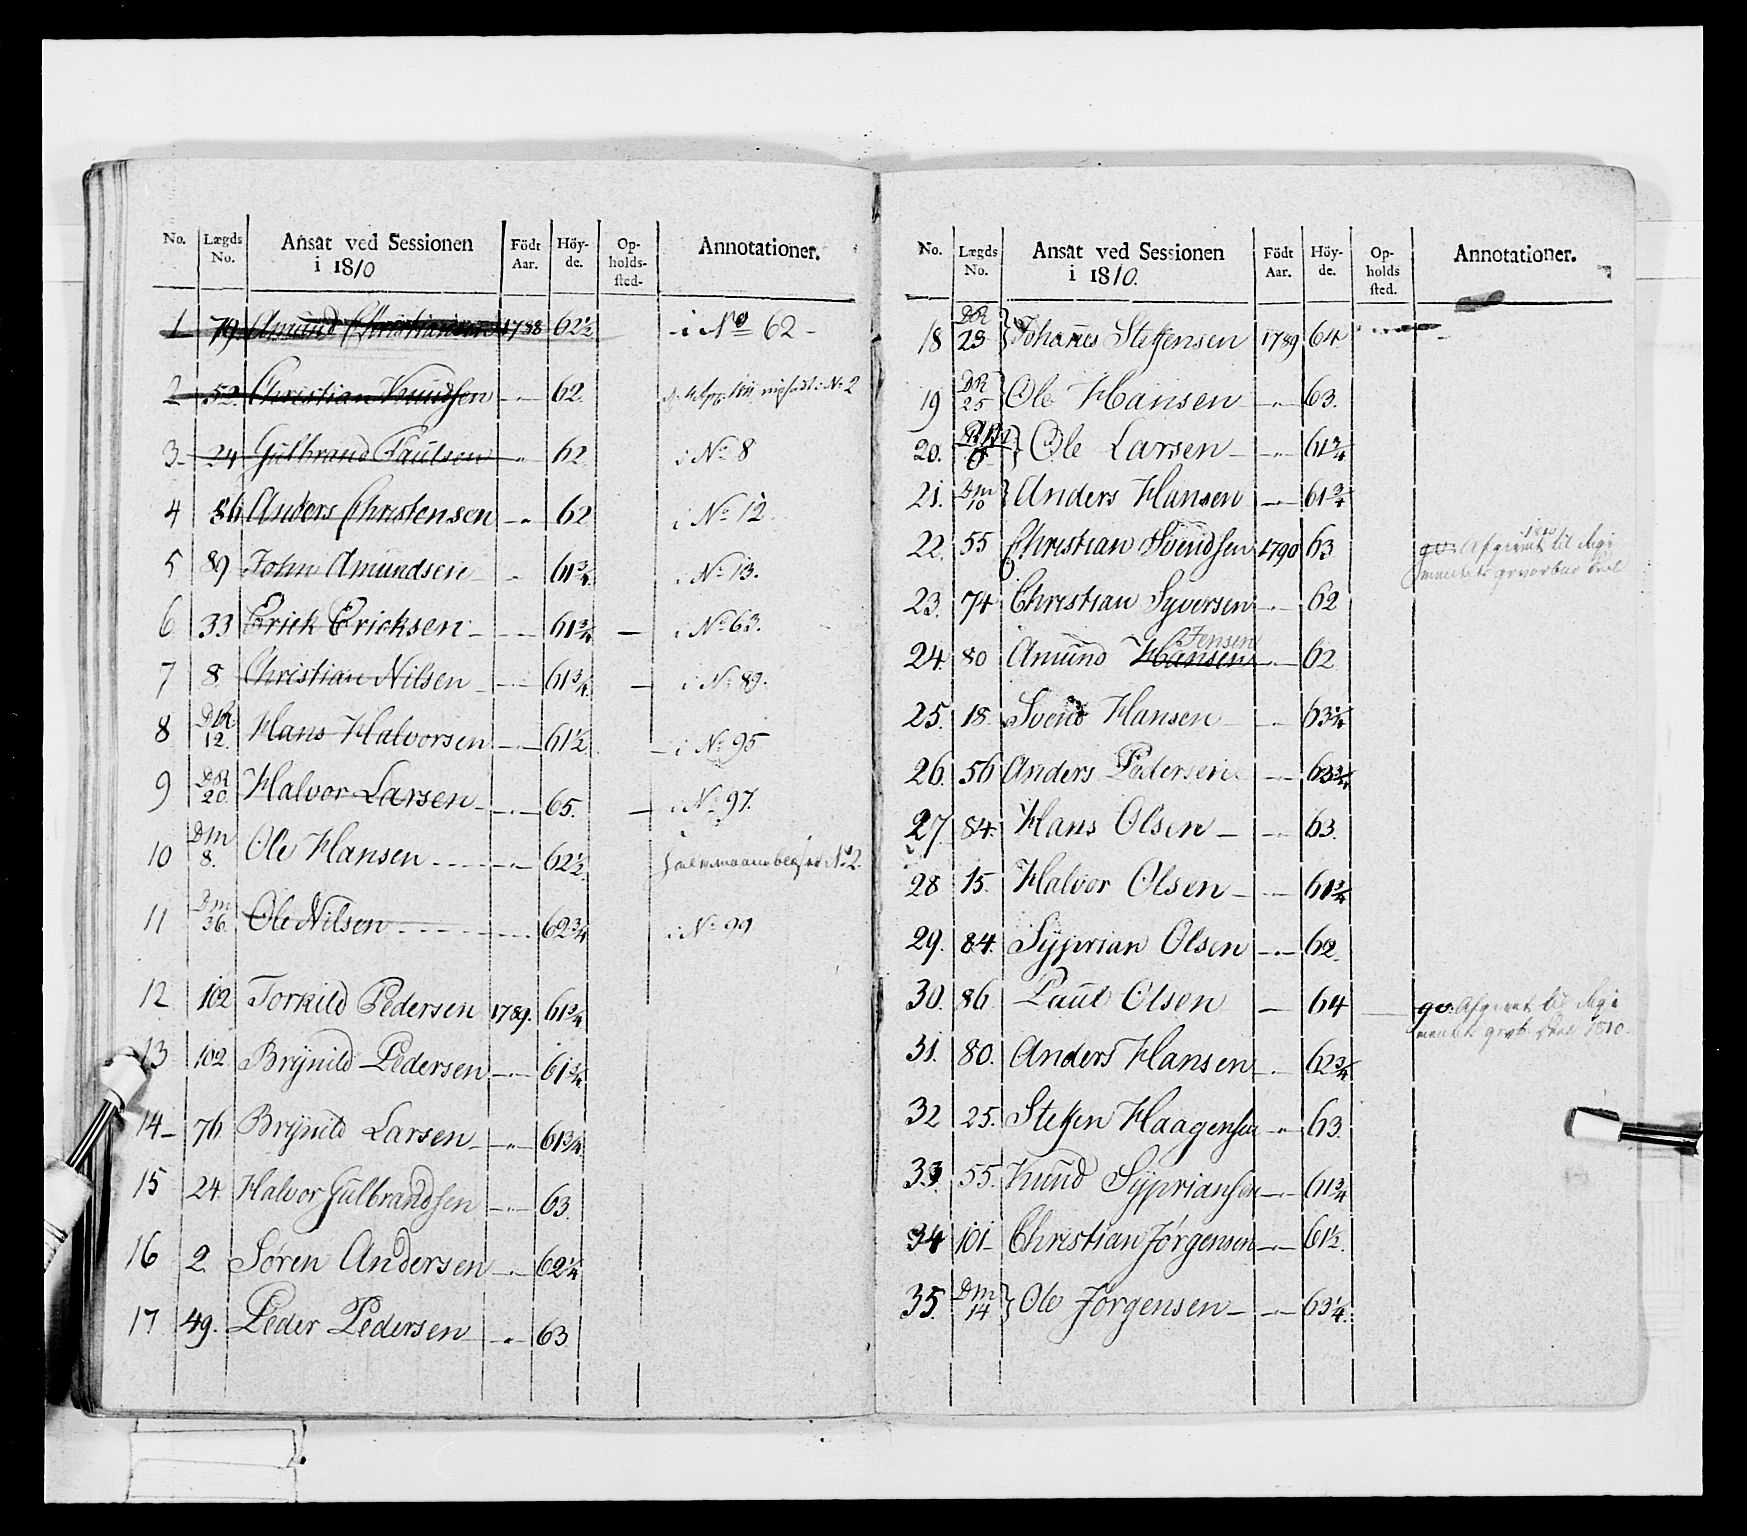 No. Lægds No. Ansat ved Sessionen i 1810 Födt Aar. Höy-de. Op-holds-sted- Annotationer.
1 79 Amund Christiansen 1788 62½ - i No 62 -
2 52 Christian Knudsen - " - 62. i No 2
3 - 24 Gulbrand Paulsen " 62 i No 8
4 86 Anders Christensen - " 62 i No 12
5 89 John Amundsen - " 61¾ i No 13.
6 33 Erich Ericksen - - - 61¾ - i No 63.
7 8 Christian Nilsen - " - 61¾ - i No 89.
8 DR 12. Hans Halvorsen - " - 61½ - i No 95
9 DR 20. Halvor Larsen - - " - 65. - i No 97.
10 Dm 8. Ole Hansen - - - " - 62½. No 2
11 Dm 36. Ole Nilsen - - - - 62¾ i No 99
12 102 Torkild Pedersen 1789. 61¾
13 102. Brÿnild Pedersen - " - 61¾
14 - 76. Brÿnild Larsen - - " - 61¾
15 24 Halvor Gulbrandsen - " - 63.
16 2. Søren Andersen - " - 62¼
17 49. Peder Pedersen - " - 63
No. Lægds No. Ansat ved Sessionen i 1810. Födt Aar. Höy-de. Op-holds sted. Annotationer.
18 DR 23 } Johanes Steffensen 1789 64
19 DR 25 Ole Hansen - " - 63.
20. Ole Larsen - - " - 61¾
21. Dm 10 } Anders Hansen - " - 61¾
22. 55 Christian Svendsen 1790 63 Afgivet til Regi
23. 74 Christian Syversen - " - 62
Jensen
24. 80 Amund Hansen - " - 62
25. 18. Svend Hansen - " - 63¼
26. 56 Anders Pedersen. - " - 63¾
27 84. Hans Olsen - - " - 63.
28 15. Halvor Olsen - - " - 61¾
29. 84. Syprian Olsen - " - 62.
30. 86. Paul Olsen - 64 - Afgivet til Regi
mentets 1810.
31. 80. Anders Hansen - " - 62¾
32 25. Steffen Haagensen - " - 63.
33. 55. Knud Sypriansen - " - 61¾
34 101 - Christian Jörgensen - " - 61½.
35. Dm 14 } Ole Jörgensen - - " - 63¼.